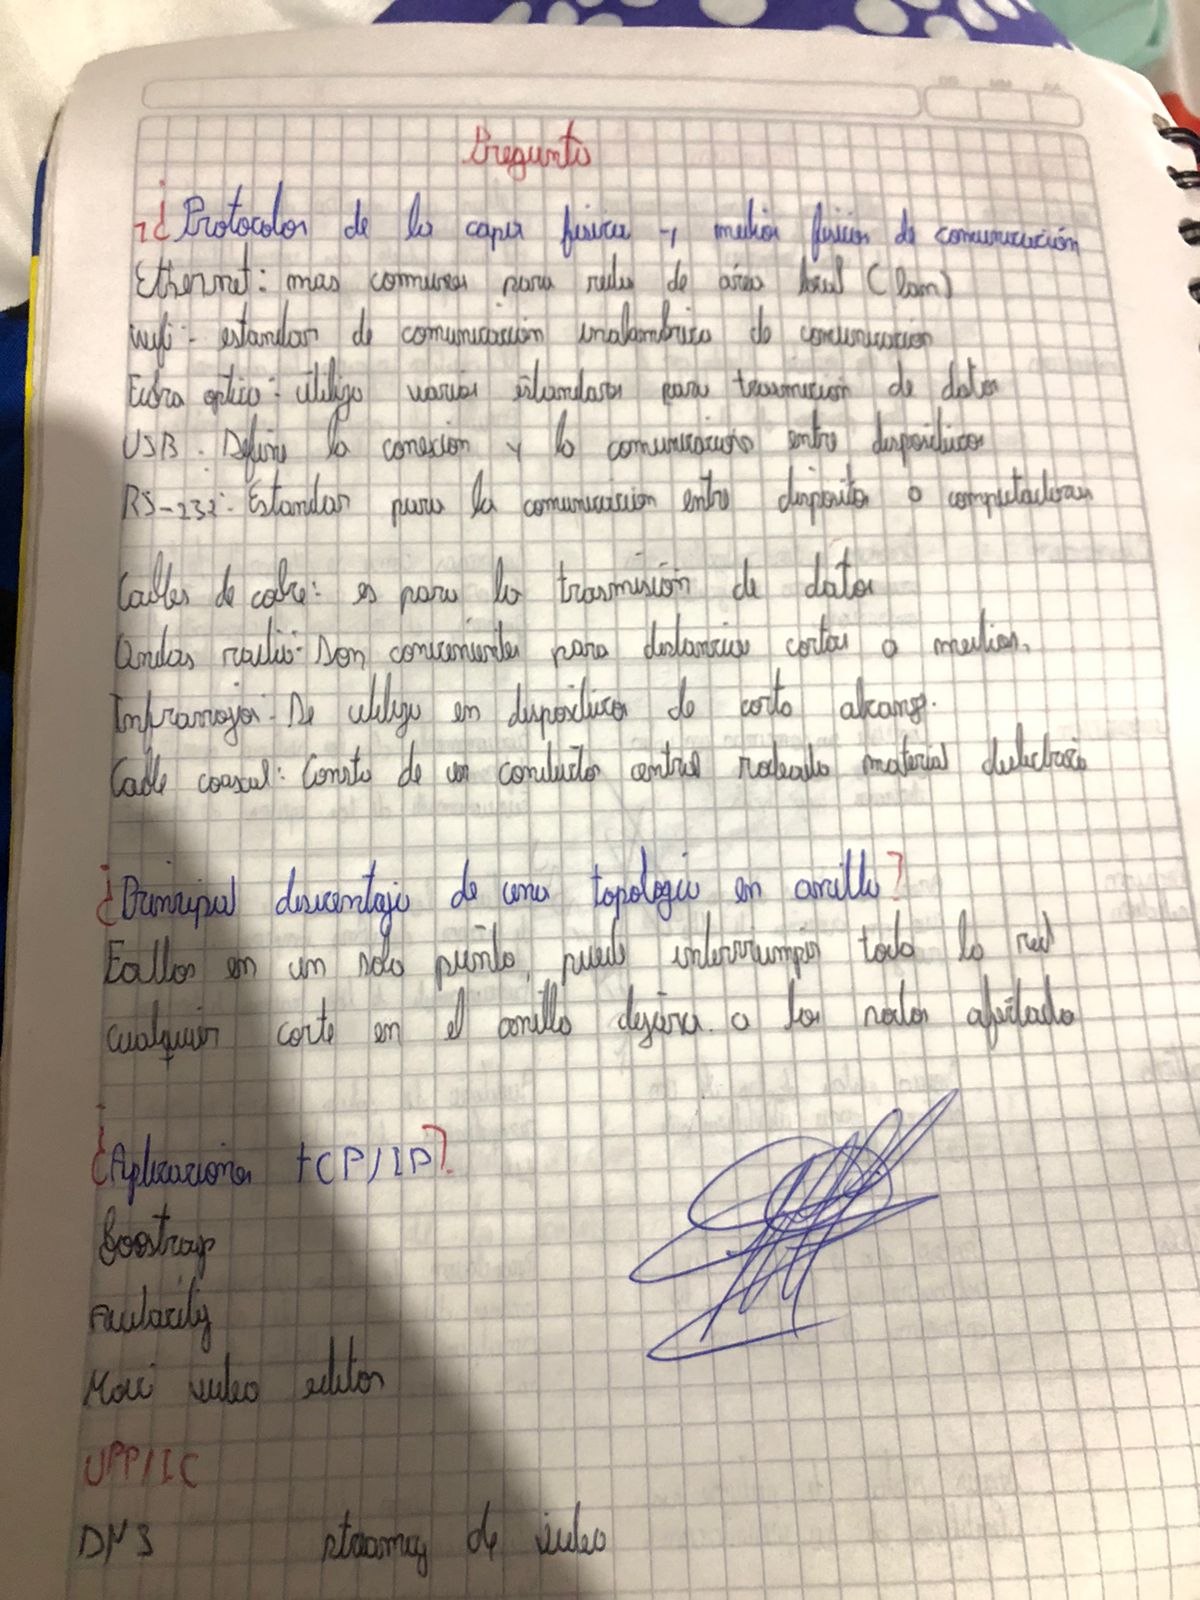 Pregunta
¿Protocolos de la capa fisica y medios fisicos de comunicación
Ethernet: mas comunes para redes de área local (lan)
wifi - estandar de comunicación inalambrica de comunicacion
Fibra optica: utiliza varios estandares para trasmicion de datos
USB. Define la conexion y la comunicacion entre dispositivos
RS-232: Estandar para la comunicacion entre disposito o computadoras
Cables de cobre: es para la trasmisión de datos
Ondas radio: Son convenientes para distancia cortas o medias.
Infrarrojos: Se utiliza en dispositivos de corto alcans.
Cable coaxial: Consta de un conductor central rodeado material dielectrico
¿Principal desventaja de una topologia en anillo?
Fallos en un solo punto, puede interrrumpir todo la red
cualquier corte en el anillo dejara a los nodos afectado
¿Aplicaciones TCP/IP?
Boostrap
video editor
UPP/IC
DNS de video